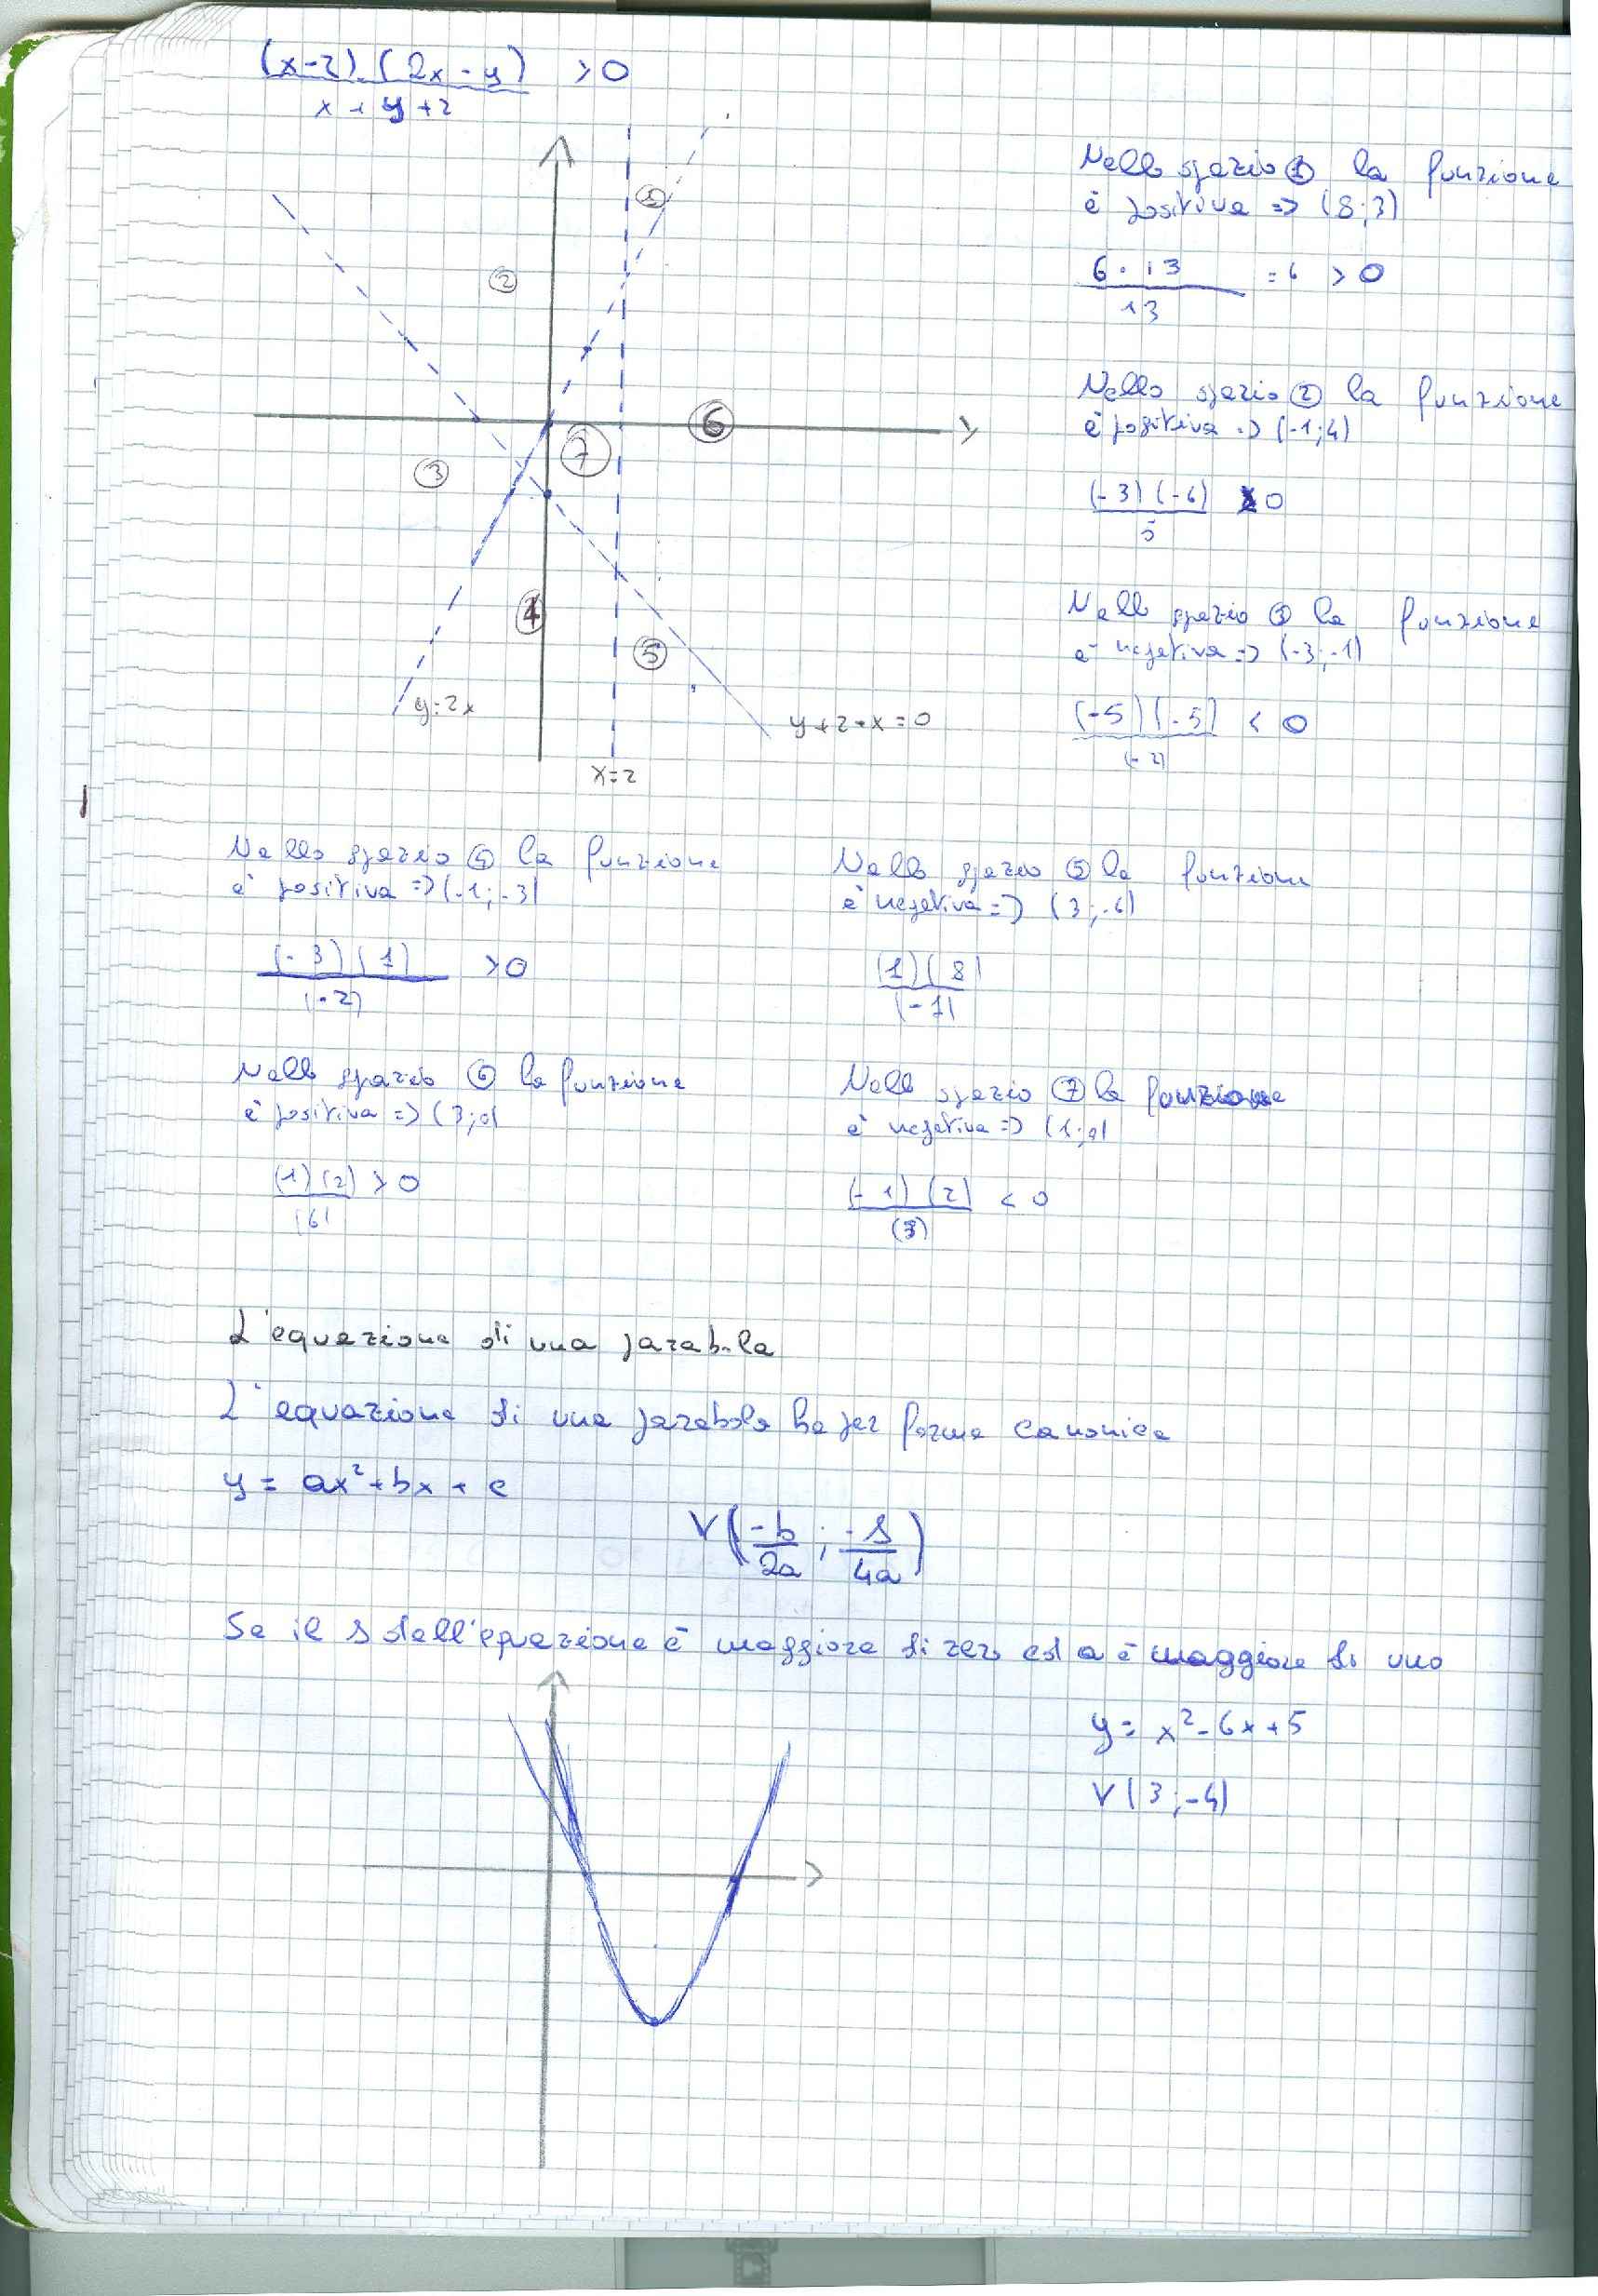 (x-2).(2x-y) >0
x+y+2
①
②
③
4
⑤
⑥
⑦
y=2x
y+2+x=0
x=2
Nello spazio ① la funzione
è positiva => (8;3)
6.13 =6 >0
13
Nello spazio ② la funzione
è positiva => (-1;4)
(-3)(-6) 0
5
Nello spazio ③ la funzione
è negativa => (-3;-1)
(-5)(-5) < 0
(-2)
Nello spazio ④ la funzione
è positiva => (-1;-3)
(-3)(1) >0
(-2)
Nello spazio ⑤ la funzione
è negativa => (3;-6)
(1)(8)
(-1)
Nello spazio ⑥ la funzione
è positiva => (3;0)
(1)(2) > 0
(6)
Nello spazio ⑦ la funzione
è negativa => (1;0)
(-1)(2) < 0
(3)
L'equazione di una parabola
L'equazione di una parabola ha per forma canonica
y = ax²+bx+c
V(-b/2a ; -Δ/4a)
Se il Δ dell'equazione è maggiore di zero ed a è maggiore di uno
y= x²-6x+5
V(3;-4)